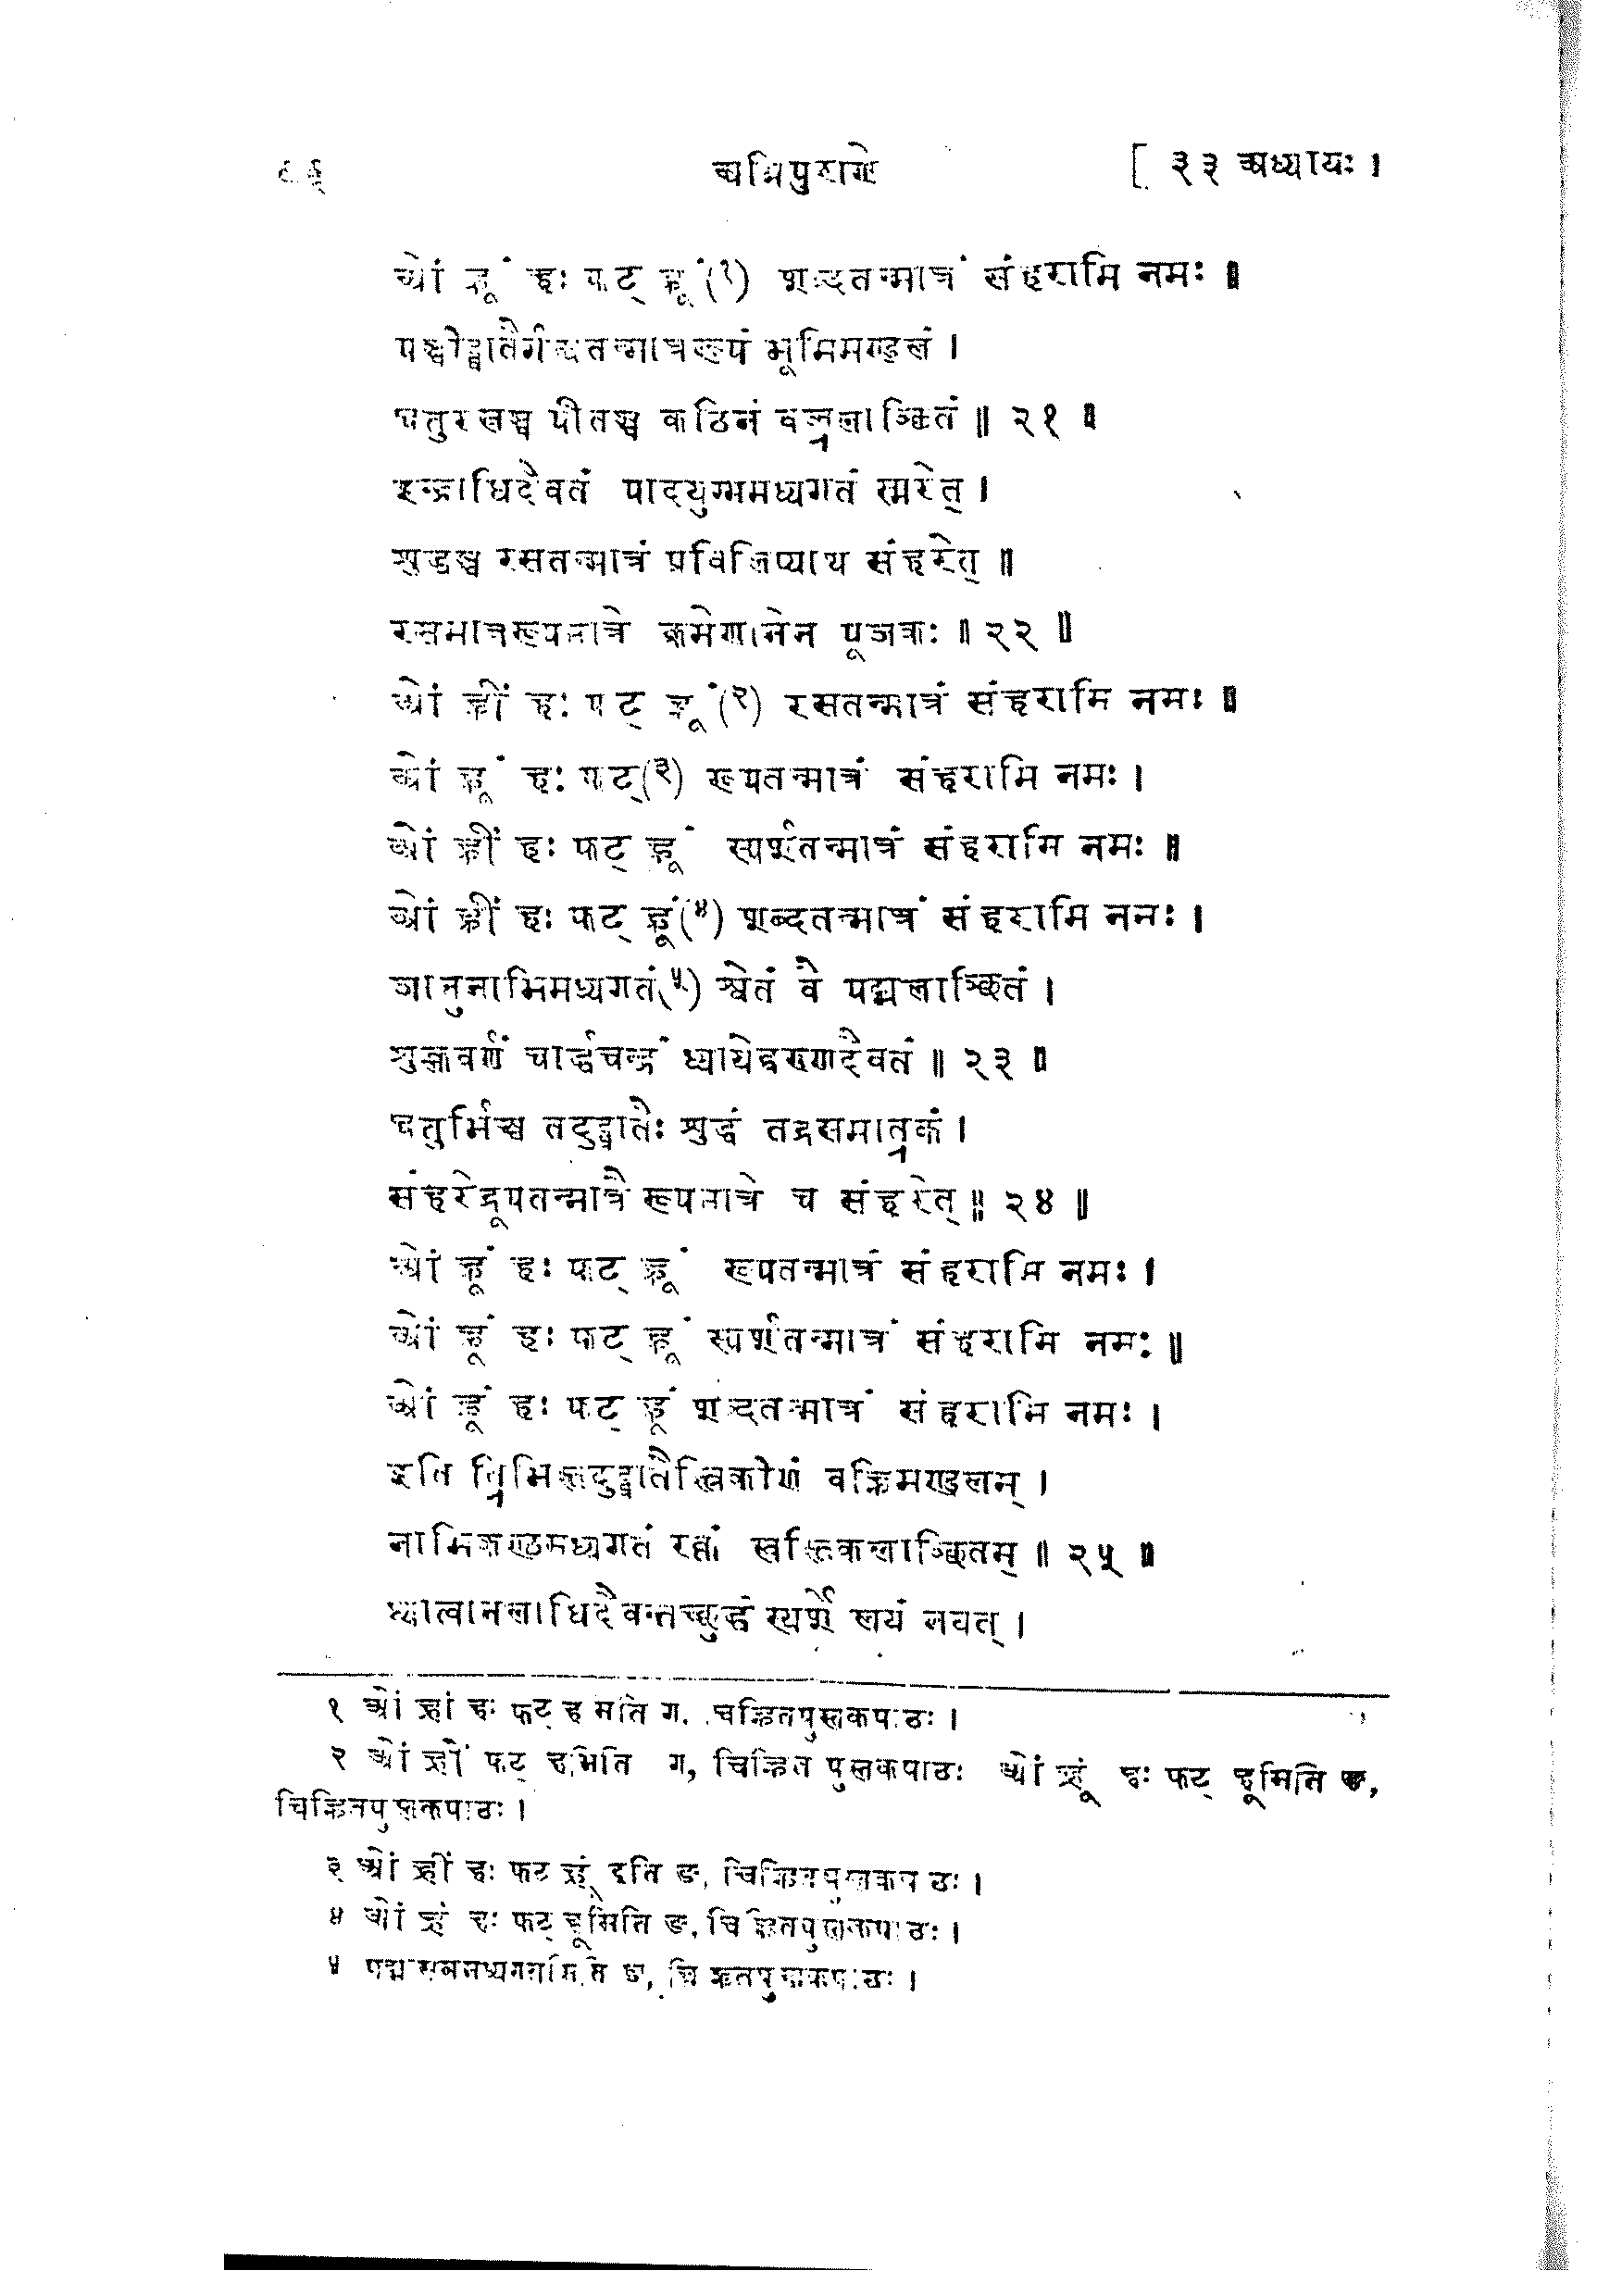 ९६ अग्निपुराणे [ ३३ अध्यायः ।
ओं ह्रूं हः फट् ह्रूं(१) शब्दतन्मात्रं संहरामि नमः ॥
पञ्चोद्घातैर्गन्धतन्मात्ररूपं भूमिमण्डलं ।
चतुरस्रञ्च पीतञ्च कठिनं वज्रलाञ्छितं ॥ २१ ॥
इन्द्राधिदैवतं पादयुग्ममध्यगतं स्मरेत् ।
शुद्धञ्च रसतन्मात्रं प्रविलिप्याथ संहरेत् ॥
रसमात्ररूपमात्रे क्रमेणानेन पूजकः ॥ २२ ॥
ओं ह्रीं हः फट् ह्रूं(२) रसतन्मात्रं संहरामि नमः ॥
ओं ह्रूं हः फट्(३) रूपतन्मात्रं संहरामि नमः ।
ओं ह्रीं हः फट् ह्रूं स्पर्शतन्मात्रं संहरामि नमः ॥
ओं ह्रीं हः फट् ह्रूं(४) शब्दतन्मात्रं संहरामि नमः ।
जानुनाभिमध्यगतं(५) श्वेतं वै पद्मलाञ्छितं ।
शुक्लवर्णं चार्द्धचन्द्रं ध्यायेद्वरुणदैवतं ॥ २३ ॥
चतुर्भिश्च तदुद्घातैः शुद्धं तद्रसमात्रकं ।
संहरेद्रूपतन्मात्रै रूपमात्रे च संहरेत् ॥ २४ ॥
ओं ह्रूं हः फट् ह्रूं रूपतन्मात्रं संहरामि नमः ।
ओं ह्रूं हः फट् ह्रूं स्पर्शतन्मात्रं संहरामि नमः ॥
ओं ह्रूं हः फट् ह्रूं शब्दतन्मात्रं संहरामि नमः ।
इति त्रिभिस्तदुद्घातैस्त्रिकोणं वह्निमण्डलम् ।
नाभिकण्ठमध्यगतं रक्तं स्वस्तिकलाञ्छितम् ॥ २५ ॥
ध्यात्वानलाधिदैवन्तच्छुद्धं स्पर्शे लयं नयेत् ।
१ ओं ह्रां हः फट् ग, चिह्नितपुस्तकपाठः ।
२ ओं ह्रों फट् ग, चिह्नित पुस्तकपाठः ओं ह्रूं हः फट् ह्रूमिति ङ,
चिह्नितपुस्तकपाठः ।
३ ओं ह्रीं हः फट ह्रूं इति ङ, चिह्नितपुस्तकपाठः ।
४ ओं ह्रं हः फट् ह्रूमिति ङ, चिह्नितपुस्तकपाठः ।
५ ङ, चिह्नितपुस्तकपाठः ।